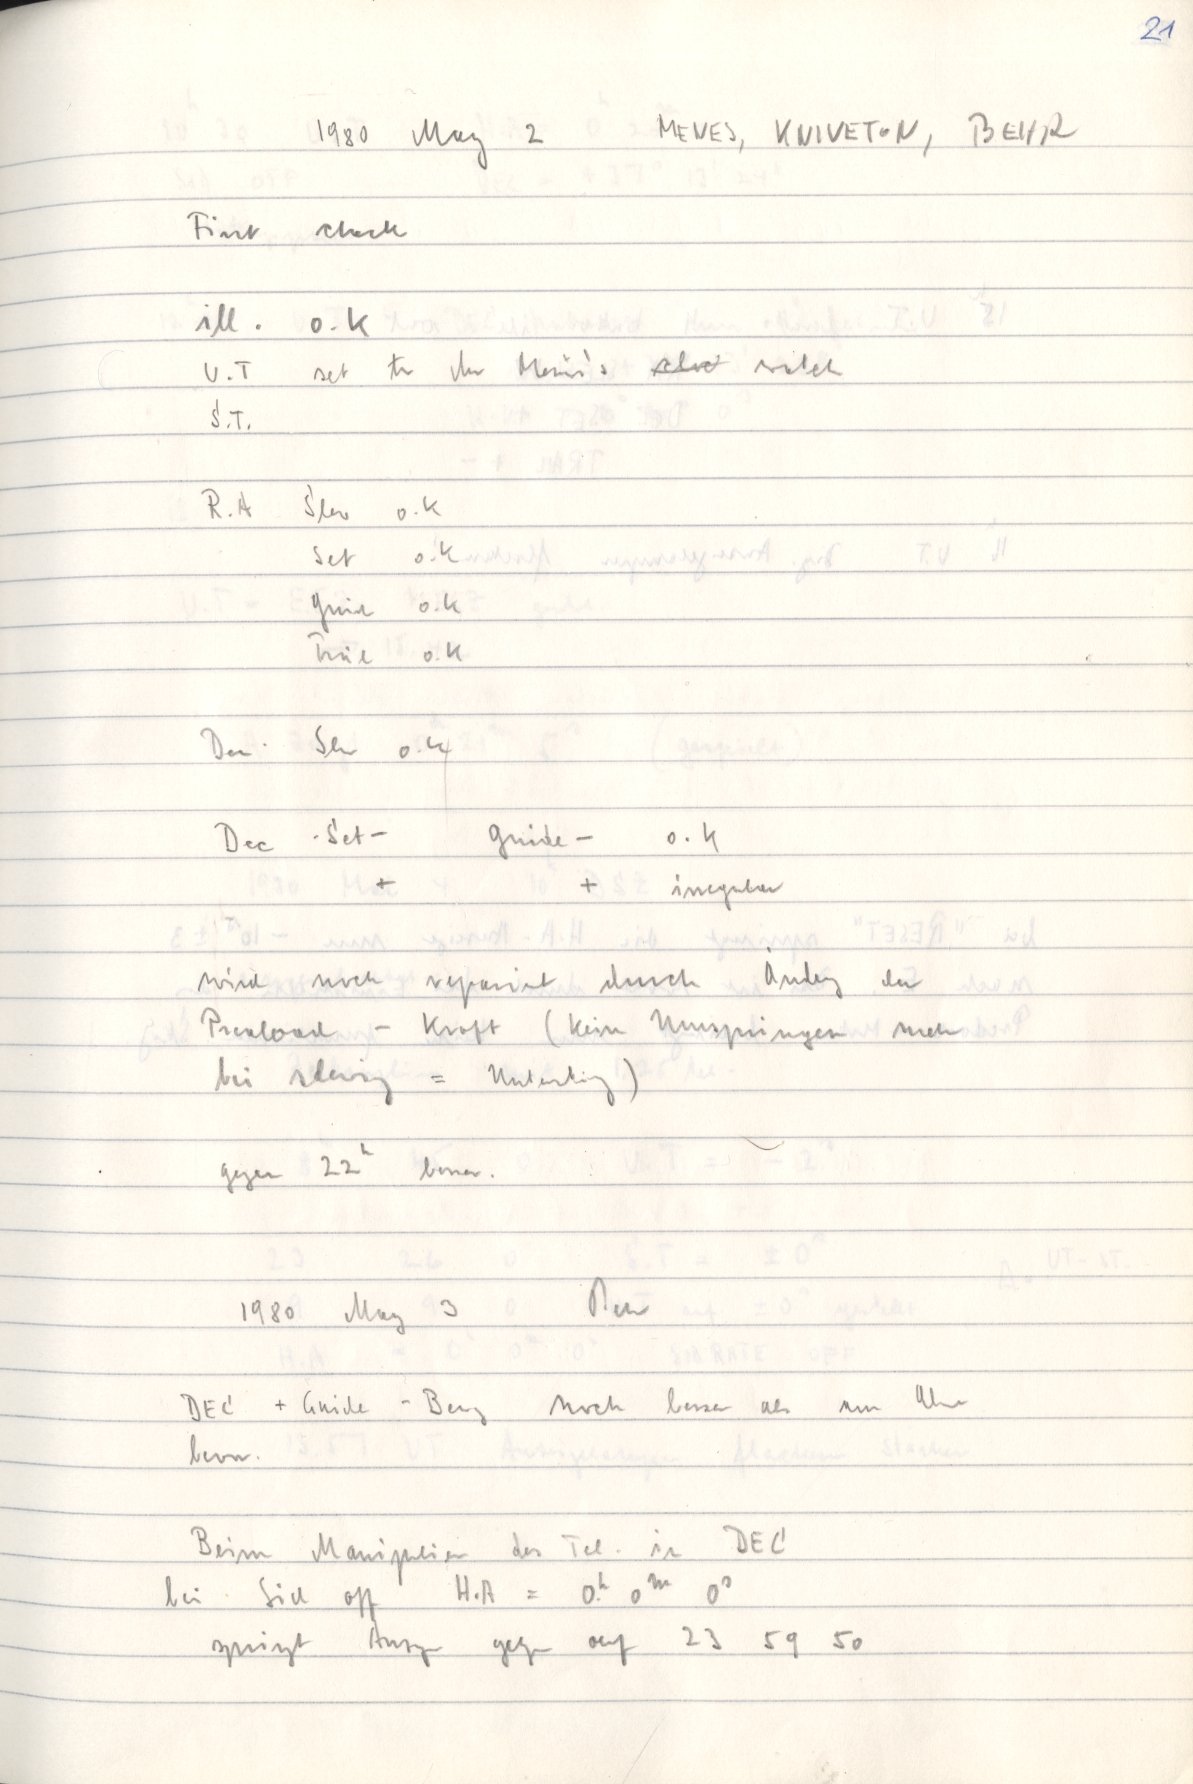 21
1980 May 2 MENES, KNIVETON, BEHR
First check
ill. o.K
U.T set to watch
S.T.
R.A Slew o.K
Set o.K
Guide o.K
o.K
Dec. Slew o.K
Dec -Set- Guide- o.K
+ + irregular
wird noch repariert durch Änderg der
Preload - Kraft (kein Umspringen mehr
bei slewing = )
gegen 22h besser.
1980 May 3 Behr
DEC + Guide - Beweg noch besser als
bevor.
Beim Manipulieren des Tel. in DEC
bei Sid off H.A = 0h 0m 0s
springt Anzeige gegen auf 23 59 50